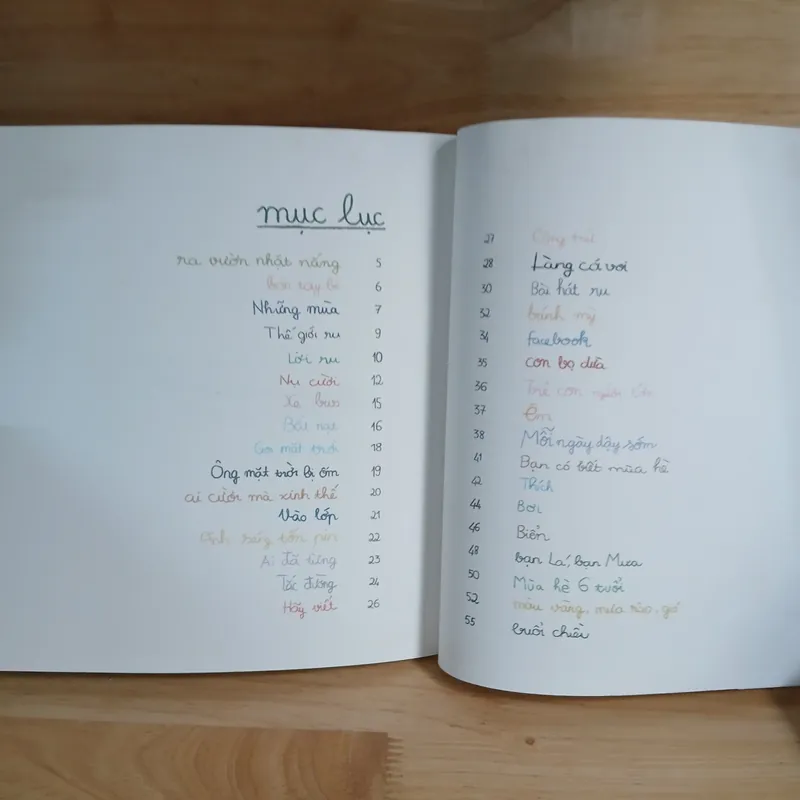 mục lục
ra vườn nhặt nắng 5
6
Những mùa 7
Thế giới ru 9
Lời ru 10
Nụ cười 12
Xe bus 15
Bắt nạt 16
Gọi mặt trời 18
Ông mặt trời bị ốm 19
ai cười mà xinh thế 20
Vào lớp 21
Ánh sáng tốn pin 22
Ai đã từng 23
Tắc đường 24
Hãy viết 26
27 Công trái
28 Làng cá voi
30 Bài hát ru
32 bánh mỳ
34 facebook
35 con bọ dừa
36 Trẻ con
37 Êm
38 Mỗi ngày dậy sớm
41 Bạn có biết mùa hè
42 Thích
44 Bơi
46 Biển
48 bạn Lá, bạn Mưa
50 Mùa hè 6 tuổi
52 màu vàng, mưa rào, gió
55 buổi chiều